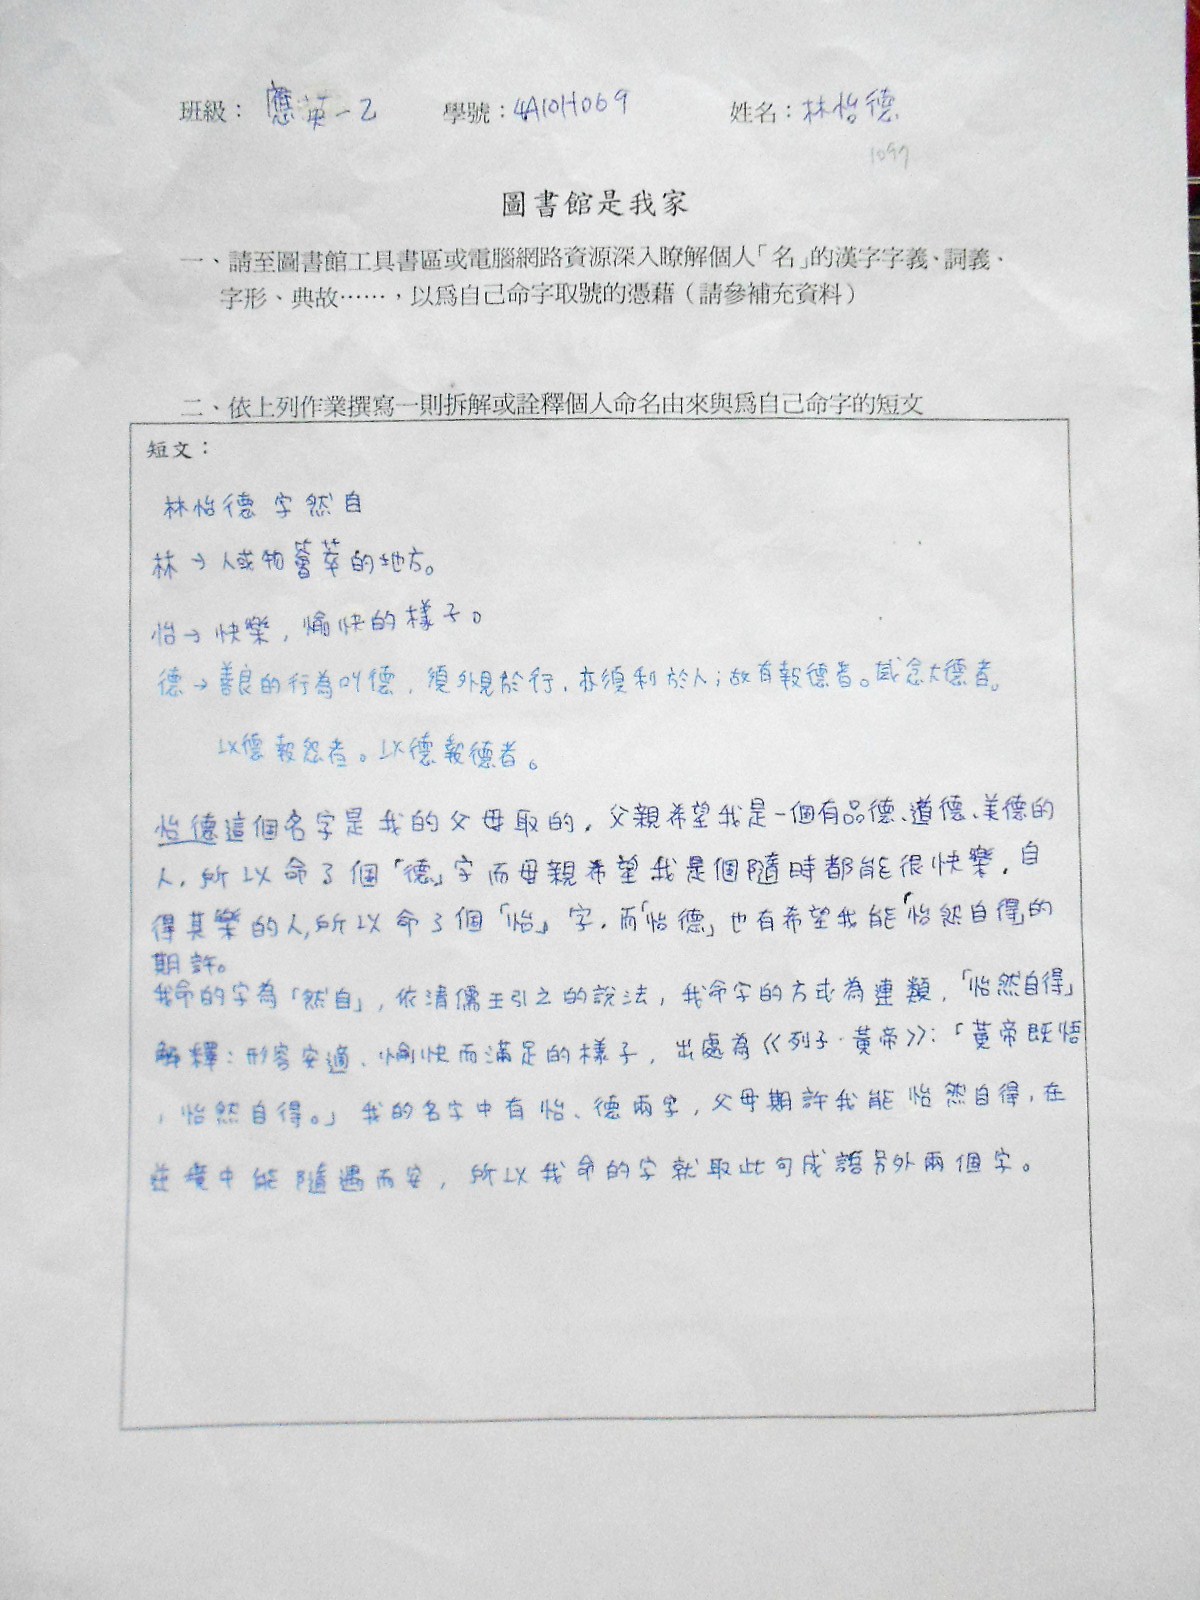 班級：應英一乙 學號：4A10H069 姓名：林怡德
1097
圖書館是我家
一、請至圖書館工具書區或電腦網路資源深入瞭解個人「名」的漢字字義、詞義、
字形、典故……，以為自己命字取號的憑藉（請參補充資料）
二、依上列作業撰寫一則拆解或詮釋個人命名由來與為自己命字的短文
短文：
林怡德 字 然自
林→人或物薈萃的地方。
怡→快樂，愉快的樣子。
德→善良的行為叫德，須外見於行，亦須利於人；故有報德者。感念大德者。
以德報怨者。以德報德者。
怡德這個名字是我的父母取的，父親希望我是一個有品德、道德、美德的
人，所以命了個「德」字而母親希望我是個隨時都能很快樂，自
得其樂的人，所以命了個「怡」字，而「怡德」也有希望我能「怡然自得」的
期許。
我命的字為「然自」，依清儒王引之的說法，我命字的方式為連類，「怡然自得」
解釋：形容安適、愉快而滿足的樣子，出處為《列子·黃帝》：「黃帝既悟
，怡然自得。」我的名字中有怡、德兩字，父母期許我能怡然自得，在
逆境中能隨遇而安，所以我命的字就取此句成語另外兩個字。